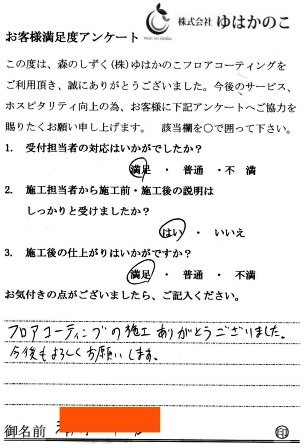 株式会社 ゆはかのこ
お客様満足度アンケート
この度は、森のしずく(株)ゆはかのこフロアコーティングを
ご利用頂き、誠にありがとうございました。今後のサービス、
ホスピタリティ向上の為、お客様に下記アンケートへご協力を
賜りたくお願い申し上げます。 該当欄を〇で囲って下さい。
1. 受付担当者の対応はいかがでしたか?
満足 ・ 普通 ・ 不 満
2. 施工担当者から施工前・施工後の説明は
しっかりと受けましたか?
はい ・ いいえ
3. 施工後の仕上がりはいかがですか?
満足 ・ 普通 ・ 不満
お気付きの点がございましたら、ご記入ください。
フロアコーティングの施工ありがとうございました。
今後もよろしくお願いします。
御名前
印